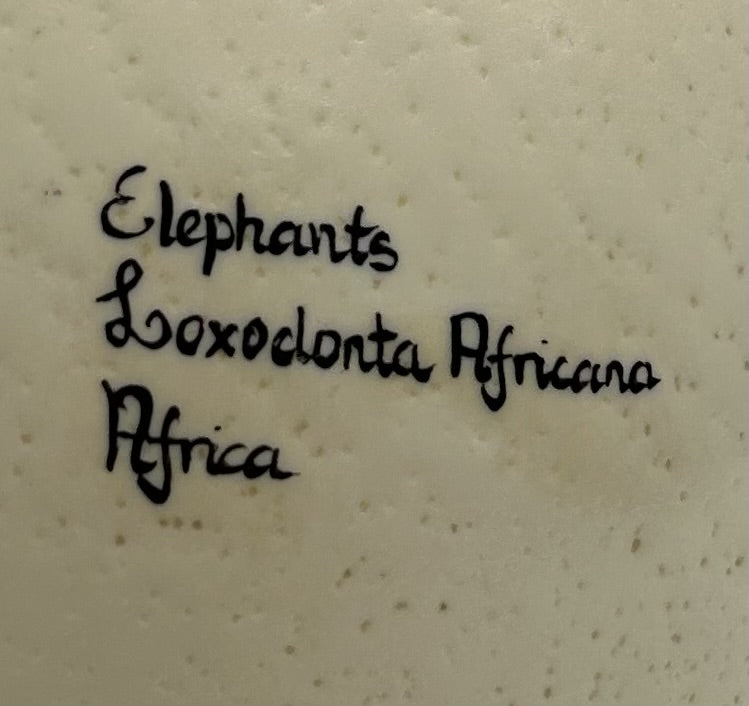 Elephants
Loxodonta Africana
Africa